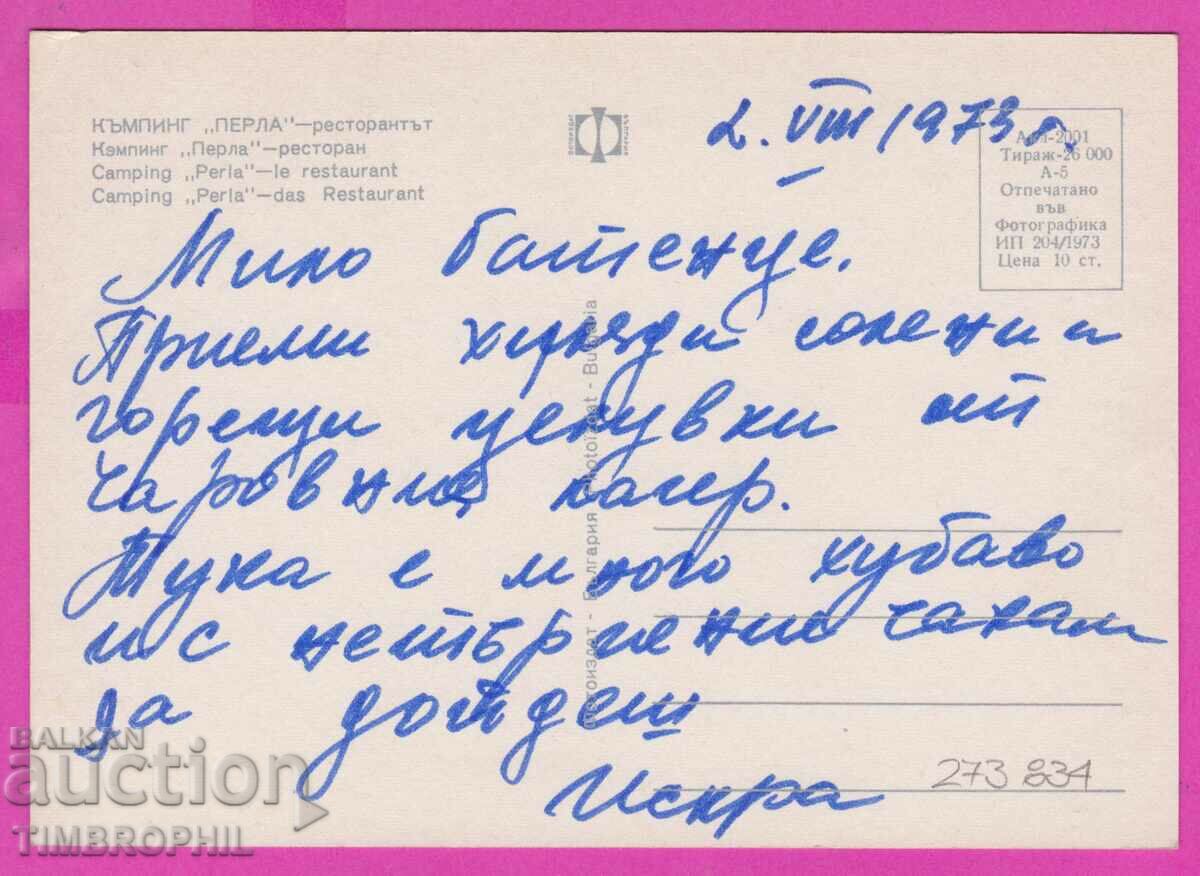 КЪМПИНГ „ПЕРЛА"—ресторантът
Кэмпинг „Перла"—ресторан
Camping „Perla"—le restaurant
Camping „Perla"—das Restaurant
2. VIII 1973 г.
Тираж-26 000
А-5
Отпечатано
във
Фотографика
ИП 204/1973
Цена 10 ст.
Мило батенце.
Приеми хиляди солени и
горещи целувки от
чаровния лагер.
Тука е много хубаво
и с нетърпение чакам
да дойдеш
Искра
Фотоиздат - България - Photoizdat - Bulgaria
273 834
BALKAN
auction
TIMBROPHIL